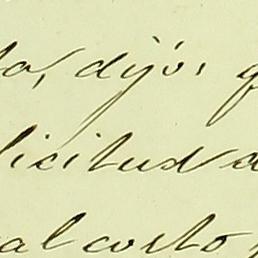 to, dijo: q
licitud d
al costo